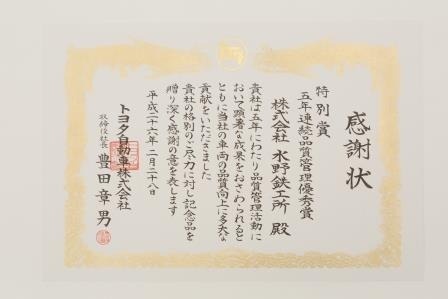 感謝状
特別賞
五年連続品質管理優秀賞
株式会社 水野鉄工所 殿
貴社は五年にわたり品質管理活動に
おいて顕著な成果をおさめられると
ともに当社の車両の品質向上に多大な
貢献をいただきました
貴社の格別のご尽力に対し記念品を
贈り深く感謝の意を表します
平成二十六年二月二十八日
トヨタ自動車株式会社
取締役社長 豊田章男